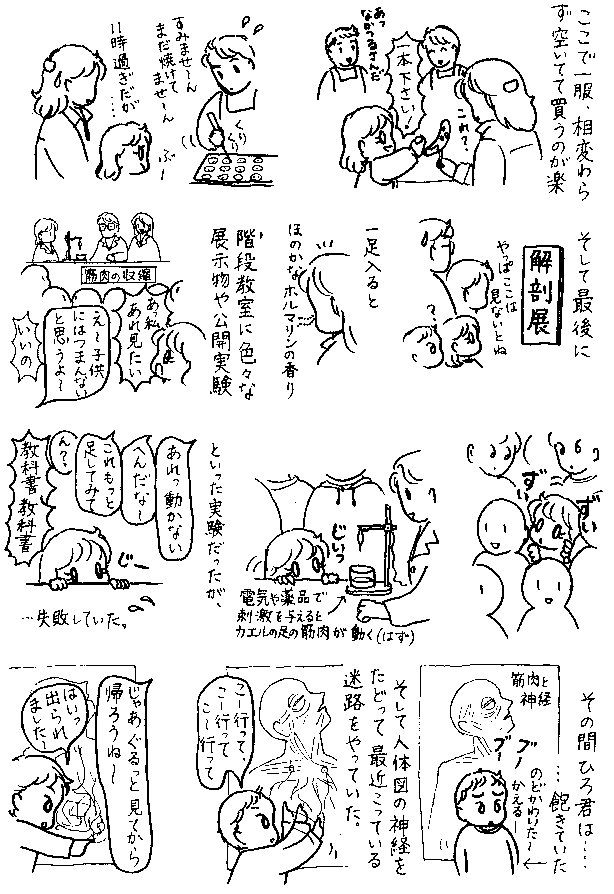 ここで一服、相変わら
ず空いてて買うのが楽
あっ
ながつるさんだ
一本下さい
これ?
すみませーん
まだ焼けて
ませーん
くりくり
11時過ぎだが
……
ふー
そして最後に
解剖展
やっぱここは
見ないとね
?
一足入ると
ほのかなホルマリンの香り
階段教室に色々な
展示物や公開実験
筋肉の収縮
あっ私
あれ見たい
え〜子供
にはつまんない
と思うよ〜
いいの
ずい
ずい
じいっ
電気や薬品で
刺激を与えると
カエルの足の筋肉が動く(はず)
といった実験だったが、
あれっ動かない
へんだな〜
これもっと
足してみて
ん?
教科書教科書
じー
…失敗していた。
その間ひろ君は…
…飽きていた
筋肉と
神経
ブー
ブー
のどかわいた〜
かえる
そして人体図の神経を
たどって最近こっている
迷路をやっていた。
こー行って
こー行って
こー行って
じゃあぐるっと見てから
帰ろうね〜
はいっ
出られ
ました〜